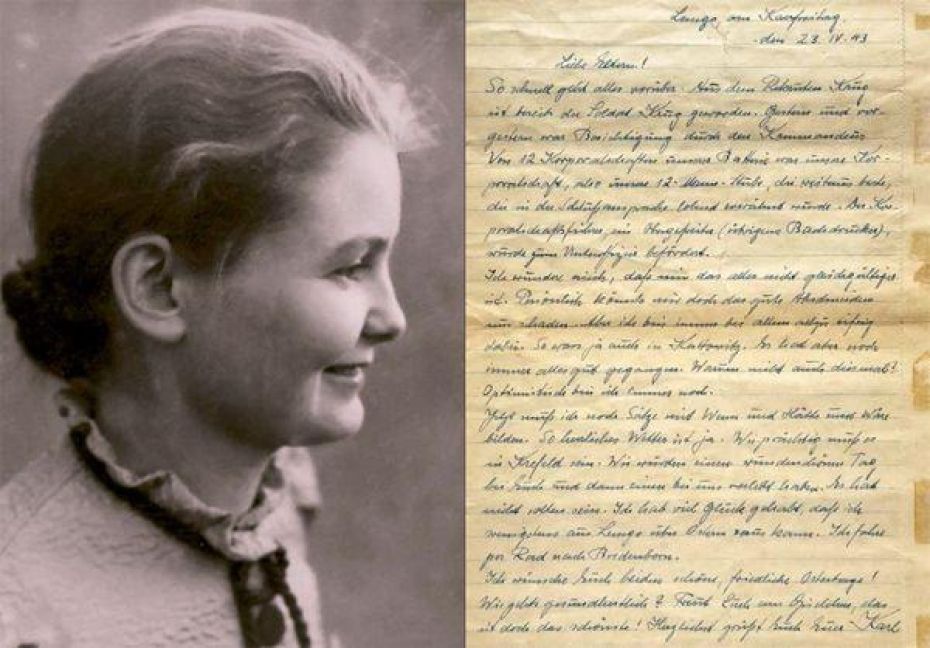 Lemgo, am Karfreitag,
den 23. IV. 43
Liebe Eltern!
So schnell geht alles vorüber. Aus dem Rekruten Krug
ist bereits der Soldat Krug geworden. Gestern und vor-
gestern war Besichtigung durch den Kommandeur
Von 12 Korporalschaften unserer Batterie war unsere Kor-
poralschaft, also unsere 12-Mann-Stube, die weitaus beste,
die in der Schlußansprache lobend erwähnt wurde. Der Kor-
poralschaftsführer, ein Obergefreiter (übrigens Buchdrucker),
wurde zum Unteroffizier befördert.
Ich wundere mich, daß mir das alles nicht gleichgültiger
ist. Persönlich könnte mir doch das gute Abschneiden
nur schaden. Aber ich bin immer bei allem allzu eifrig
dabei. So wars ja auch in Kattowitz. Es hat aber noch
immer alles gut gegangen. Warum nicht auch diesmal?
Optimistisch bin ich immer noch.
Jetzt muß ich noch Sätze mit Wenn und Hätte und Wäre
bilden. So herrliches Wetter ist ja. Wie prächtig muß es
in Krefeld sein. Wir würden einen wunderschönen Tag
bei Euch und dann einen bei uns verlebt haben. Es hat
nicht sollen sein. Ich hab viel Glück gehabt, daß ich
wenigstens aus Lemgo über Ostern raus kann. Ich fahre
per Rad nach Bredenborn.
Ich wünsche Euch beiden schöne, friedliche Ostertage!
Wie gehts gesundheitlich? Freut Euch am das
ist doch das schönste! Herzlichst grüßt Euch Euer Karl